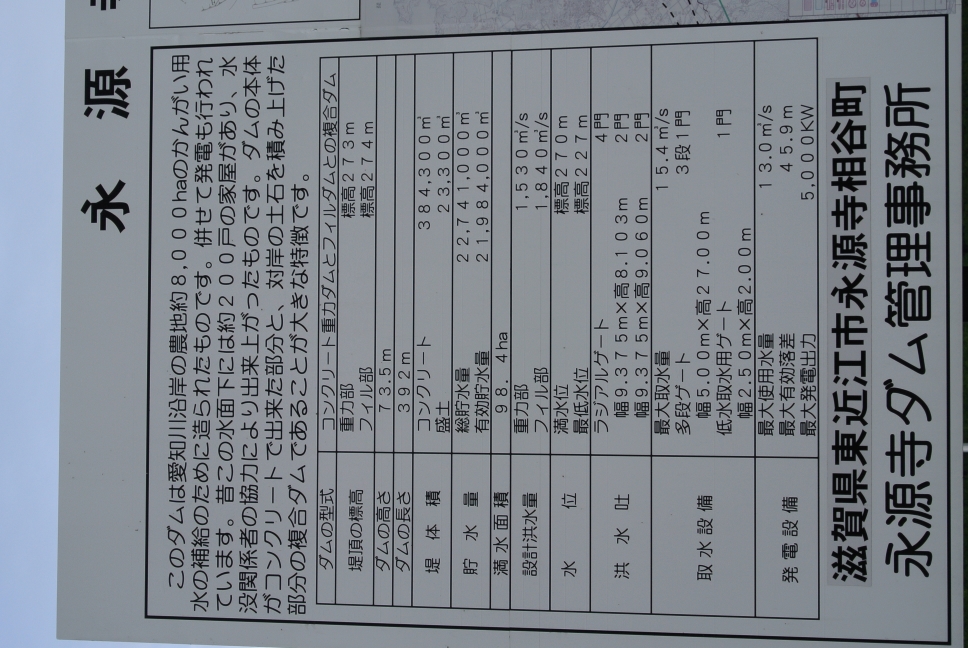 永 源
このダムは愛知川沿岸の農地約8,000haのかんがい用
水の補給のために造られたものです。併せて発電も行われ
ています。昔この水面下には約200戸の家屋があり、水
没関係者の協力により出来上がったものです。ダムの本体
がコンクリートで出来た部分と、対岸の土石を積み上げた
部分の複合ダムであることが大きな特徴です。
ダムの型式 コンクリート重力ダムとフィルダムとの複合ダム
堤頂の標高 重力部 標高273m
フィル部 標高274m
ダムの高さ 73.5m
ダムの長さ 392m
堤体積 コンクリート 384,300㎥
盛土 23,300㎥
貯水量 総貯水量 22,741,000㎥
有効貯水量 21,984,000㎥
満水面積 98.4ha
設計洪水量 重力部 1,530㎥/s
フィル部 1,840㎥/s
水位 満水位 標高270m
最低水位 標高227m
洪水吐 ラジアルゲート 4門
幅9.375m×高8.103m 2門
幅9.375m×高9.060m 2門
取水設備 最大取水量 15.4㎥/s
多段ゲート 3段1門
幅5.00m×高27.00m
低水取水用ゲート 1門
幅2.50m×高2.00m
発電設備 最大使用水量 13.0㎥/s
最大有効落差 45.9m
最大発電出力 5,000KW
滋賀県東近江市永源寺相谷町
永源寺ダム管理事務所